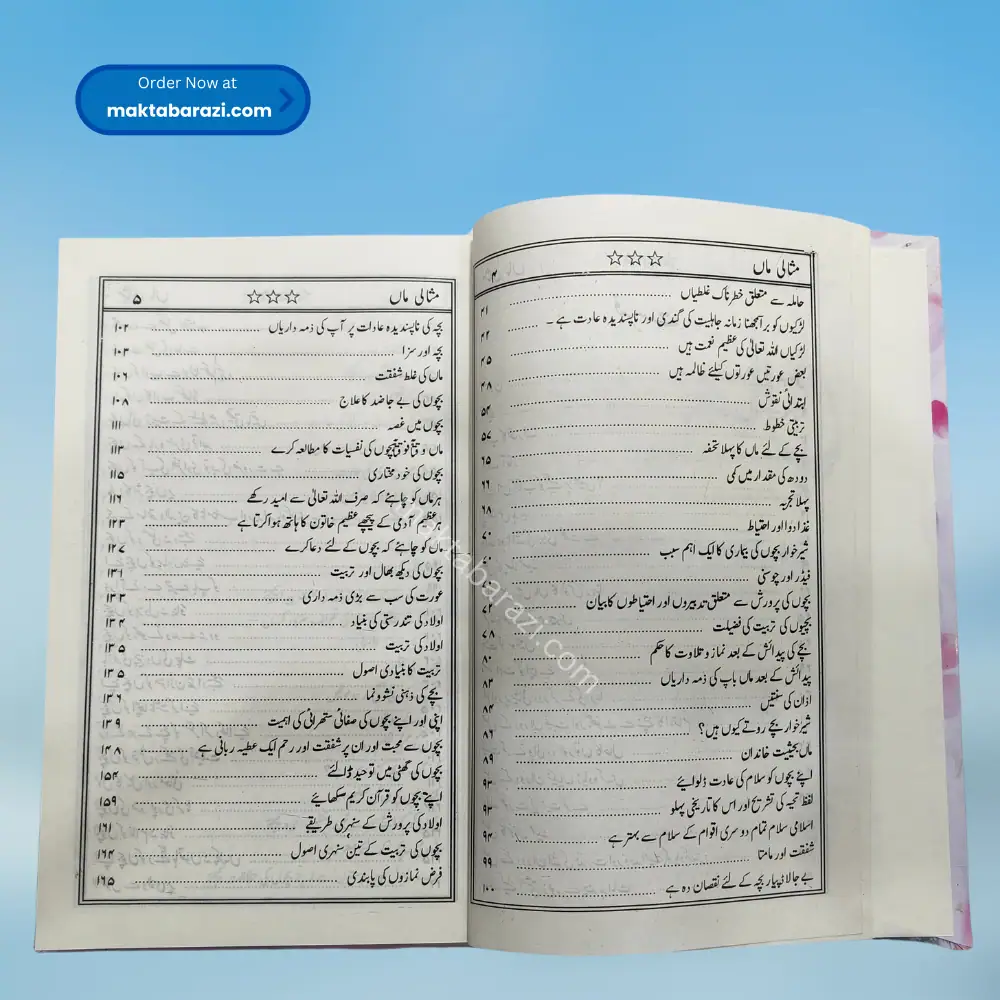 Order Now at
maktabarazi.com
مثالی ماں ☆☆☆ ۴
حاملہ سے متعلق خطرناک غلطیاں ۴۱
لڑکیوں کو برا سمجھنا زمانہ جاہلیت کی گندی اور ناپسندیدہ عادت ہے۔ ۴۲
لڑکیاں اللہ تعالیٰ کی عظیم نعمت ہیں ۴۵
بعض عورتیں عورتوں کیلئے ظالمہ ہیں ۴۸
ابتدائی نقوش ۵۴
تربیتی خطوط ۵۷
بچے کے لئے ماں کا پہلا تحفہ ۶۵
دودھ کی مقدار میں کمی ۶۶
پہلا تجربہ ۶۸
غذا دوا اور احتیاط ۷۰
شیر خوار بچوں کی بیماری کا ایک اہم سبب
فیڈر اور چوسنی
بچوں کی پرورش سے متعلق تدبیروں اور احتیاطوں کا بیان
بچیوں کی تربیت کی فضیلت ۷۸
بچے کی پیدائش کے بعد نماز و تلاوت کا حکم ۸۰
پیدائش کے بعد ماں باپ کی ذمہ داریاں ۸۳
اذان کی سنتیں ۸۴
شیر خوار بچے روتے کیوں ہیں؟ ۸۶
ماں بحیثیت خاندان ۸۹
اپنے بچوں کو سلام کی عادت ڈلوائیے ۹۳
لفظ تحیہ کی تشریح اور اس کا تاریخی پہلو ۹۳
اسلامی سلام تمام دوسری اقوام کے سلام سے بہتر ہے ۹۴
شفقت اور مامتا ۹۹
بے جا لاڈ پیار بچہ کے لئے نقصان دہ ہے ۱۰۰
مثالی ماں ☆☆☆ ۵
بچہ کی ناپسندیدہ عادات پر آپ کی ذمہ داریاں ۱۰۲
بچہ اور سزا ۱۰۳
ماں کی غلط شفقت ۱۰۶
بچوں کی بے جا ضد کا علاج ۱۰۸
بچوں میں غصہ ۱۱۱
ماں وقتاً فوقتاً بچوں کی نفسیات کا مطالعہ کرے ۱۱۳
بچوں کی خود مختاری ۱۱۵
ہر ماں کو چاہئے کہ صرف اللہ تعالیٰ سے امید رکھے ۱۱۶
ہر عظیم آدمی کے پیچھے عظیم خاتون کا ہاتھ ہوا کرتا ہے ۱۲۳
ماں کو چاہئے کہ بچوں کے لئے دعا کرے ۱۲۷
بچوں کی دیکھ بھال اور تربیت ۱۳۱
عورت کی سب سے بڑی ذمہ داری ۱۳۳
اولاد کی تندرستی کی بنیاد ۱۳۴
اولاد کی تربیت ۱۳۵
تربیت کا بنیادی اصول ۱۳۵
بچے کی ذہنی نشوونما ۱۳۶
اپنی اور اپنے بچوں کی صفائی ستھرائی کی اہمیت ۱۳۹
بچوں سے محبت اور ان پر شفقت اور رحم ایک عطیہ ربانی ہے ۱۴۸
بچوں کی گھٹی میں توحید ڈالئے ۱۵۴
اپنے بچوں کو قرآن کریم سکھائیے ۱۵۹
اولاد کی پرورش کے سنہری طریقے ۱۶۱
بچوں کی تربیت کے تین سنہری اصول ۱۶۴
فرض نمازوں کی پابندی ۱۶۵
maktabarazi.com